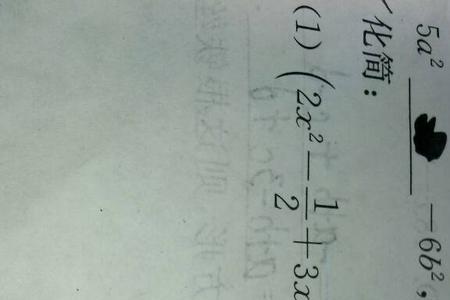 5a² ____ -6b²,
化简：
(1) (2x² - 1/2 + 3x